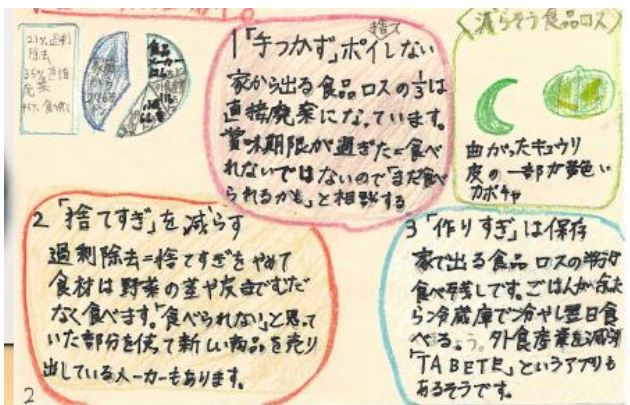 21%過剰
除去
35%直接
廃棄
食品
メーカー
捨て
1「手つかず」ポイしない
家から出る食品ロスの1/3は
直接廃棄になっています。
賞味期限が過ぎた=食べ
れないではないので「まだ食べ
られるかも」と相談する
〈減らそう食品ロス〉
曲がったキュウリ
皮の一部が黄色い
カボチャ
2「捨てすぎ」を減らす
過剰除去=捨てすぎをやめて
食材は野菜の茎や皮まで むだ
なく食べます。「食べられない」と思って
いた部分を使って新しい商品を売り
出しているメーカーもあります。
3「作りすぎ」は保存
家で出る食品ロスの半分が
食べ残しです。ごはんが余った
ら冷蔵庫で冷やし翌日食
べる
「TABETE」というアプリも
あるそうです。
2